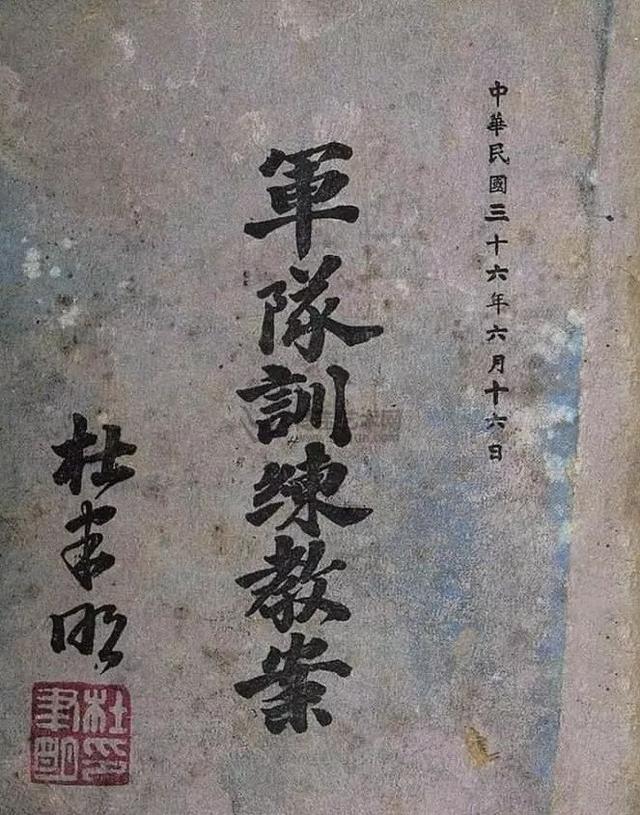 中華民國三十六年六月十六日
軍隊訓練教案
杜聿明
杜聿明印